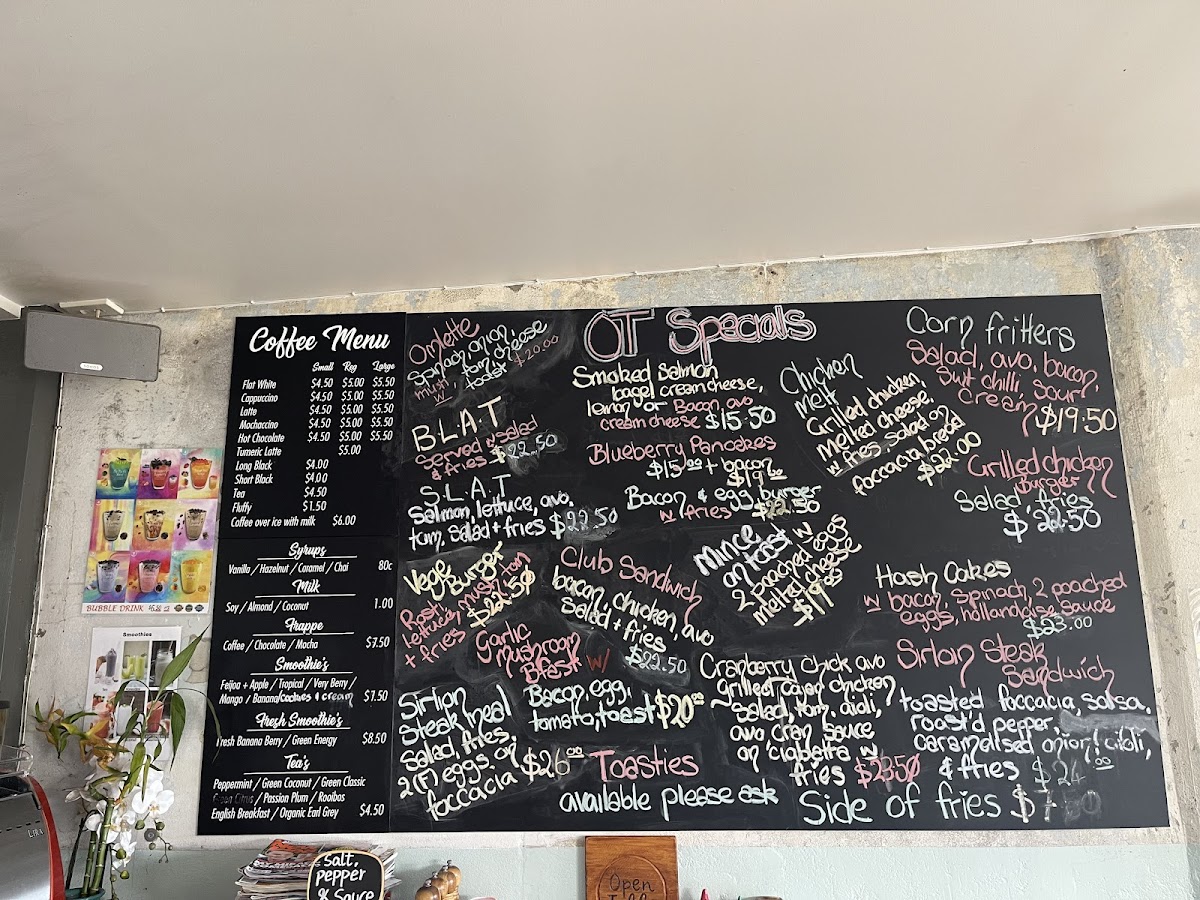 Coffee Menu
Small Reg Large
Flat White $4.50 $5.00 $5.50
Cappuccino $4.50 $5.00 $5.50
Latte $4.50 $5.00 $5.50
Mochaccino $4.50 $5.00 $5.50
Hot Chocolate $4.50 $5.00 $5.50
Tumeric Latte $5.00
Long Black $4.00
Short Black $4.00
Tea $4.50
Fluffy $1.50
Coffee over ice with milk $6.00
Syrups
Vanilla / Hazelnut / Caramel / Chai 80c
Milk
Soy / Almond / Coconut 1.00
Frappe
Coffee / Chocolate / Mocha $7.50
Smoothie's
Feijoa + Apple / Tropical / Very Berry /
Mango / Banana/Cookies & cream $7.50
Fresh Smoothie's
Fresh Banana Berry / Green Energy $8.50
Tea's
Peppermint / Green Coconut / Green Classic
Green Citrus / Passion Plum / Rooibos
English Breakfast / Organic Earl Grey $4.50
Omlette
Spinach, onion,
mush, tom, cheese
w toast $20.00
B.L.A.T
Served w salad
& fries $22.50
S.L.A.T
Salmon, lettuce, avo,
tom, salad + fries $22.50
Vege
Burger
Rosti,
lettuce, mushroom
+ fries $22.50
Garlic
Mushroom
Bfast w/
Bacon, egg,
tomato, toast $20.00
Sirlion
Steak meal
Salad, fries,
2 (F) eggs, on
foccacia $26.00
OT Specials
Smoked Salmon
bagel, creamcheese,
lemon or Bacon avo
cream cheese $15.50
Blueberry Pancakes
$15.00 + bacon
$19.00
Bacon & egg burger
w fries $22.50
Club Sandwich
bacon, chicken, avo
Salad + fries
$22.50
Toasties
available please ask
Chicken
melt
Grilled chicken,
melted cheese,
w fries, salad on
foccacia bread
$22.00
Mince
on toast w
2 poached eggs
melted cheese
$19.00
Cranberry chick avo
Grilled Cajon chicken
Salad, tom, aioli,
avo, cran sauce
on ciabatta w
fries $23.50
Corn fritters
Salad, avo, bacon,
Swt chilli, sour
cream $19.50
Grilled chicken
Burger
Salad, fries
$22.50
Hash Cakes
w bacon, spinach, 2 poached
eggs, hollandaise sauce
$23.00
Sirloin Steak
Sandwich
toasted foccacia, salsa,
roast'd pepper,
caramelised onion, aioli,
& fries $24.00
Side of fries
BUBBLE DRINK
Smoothies
Salt,
pepper
& Sauce
Open